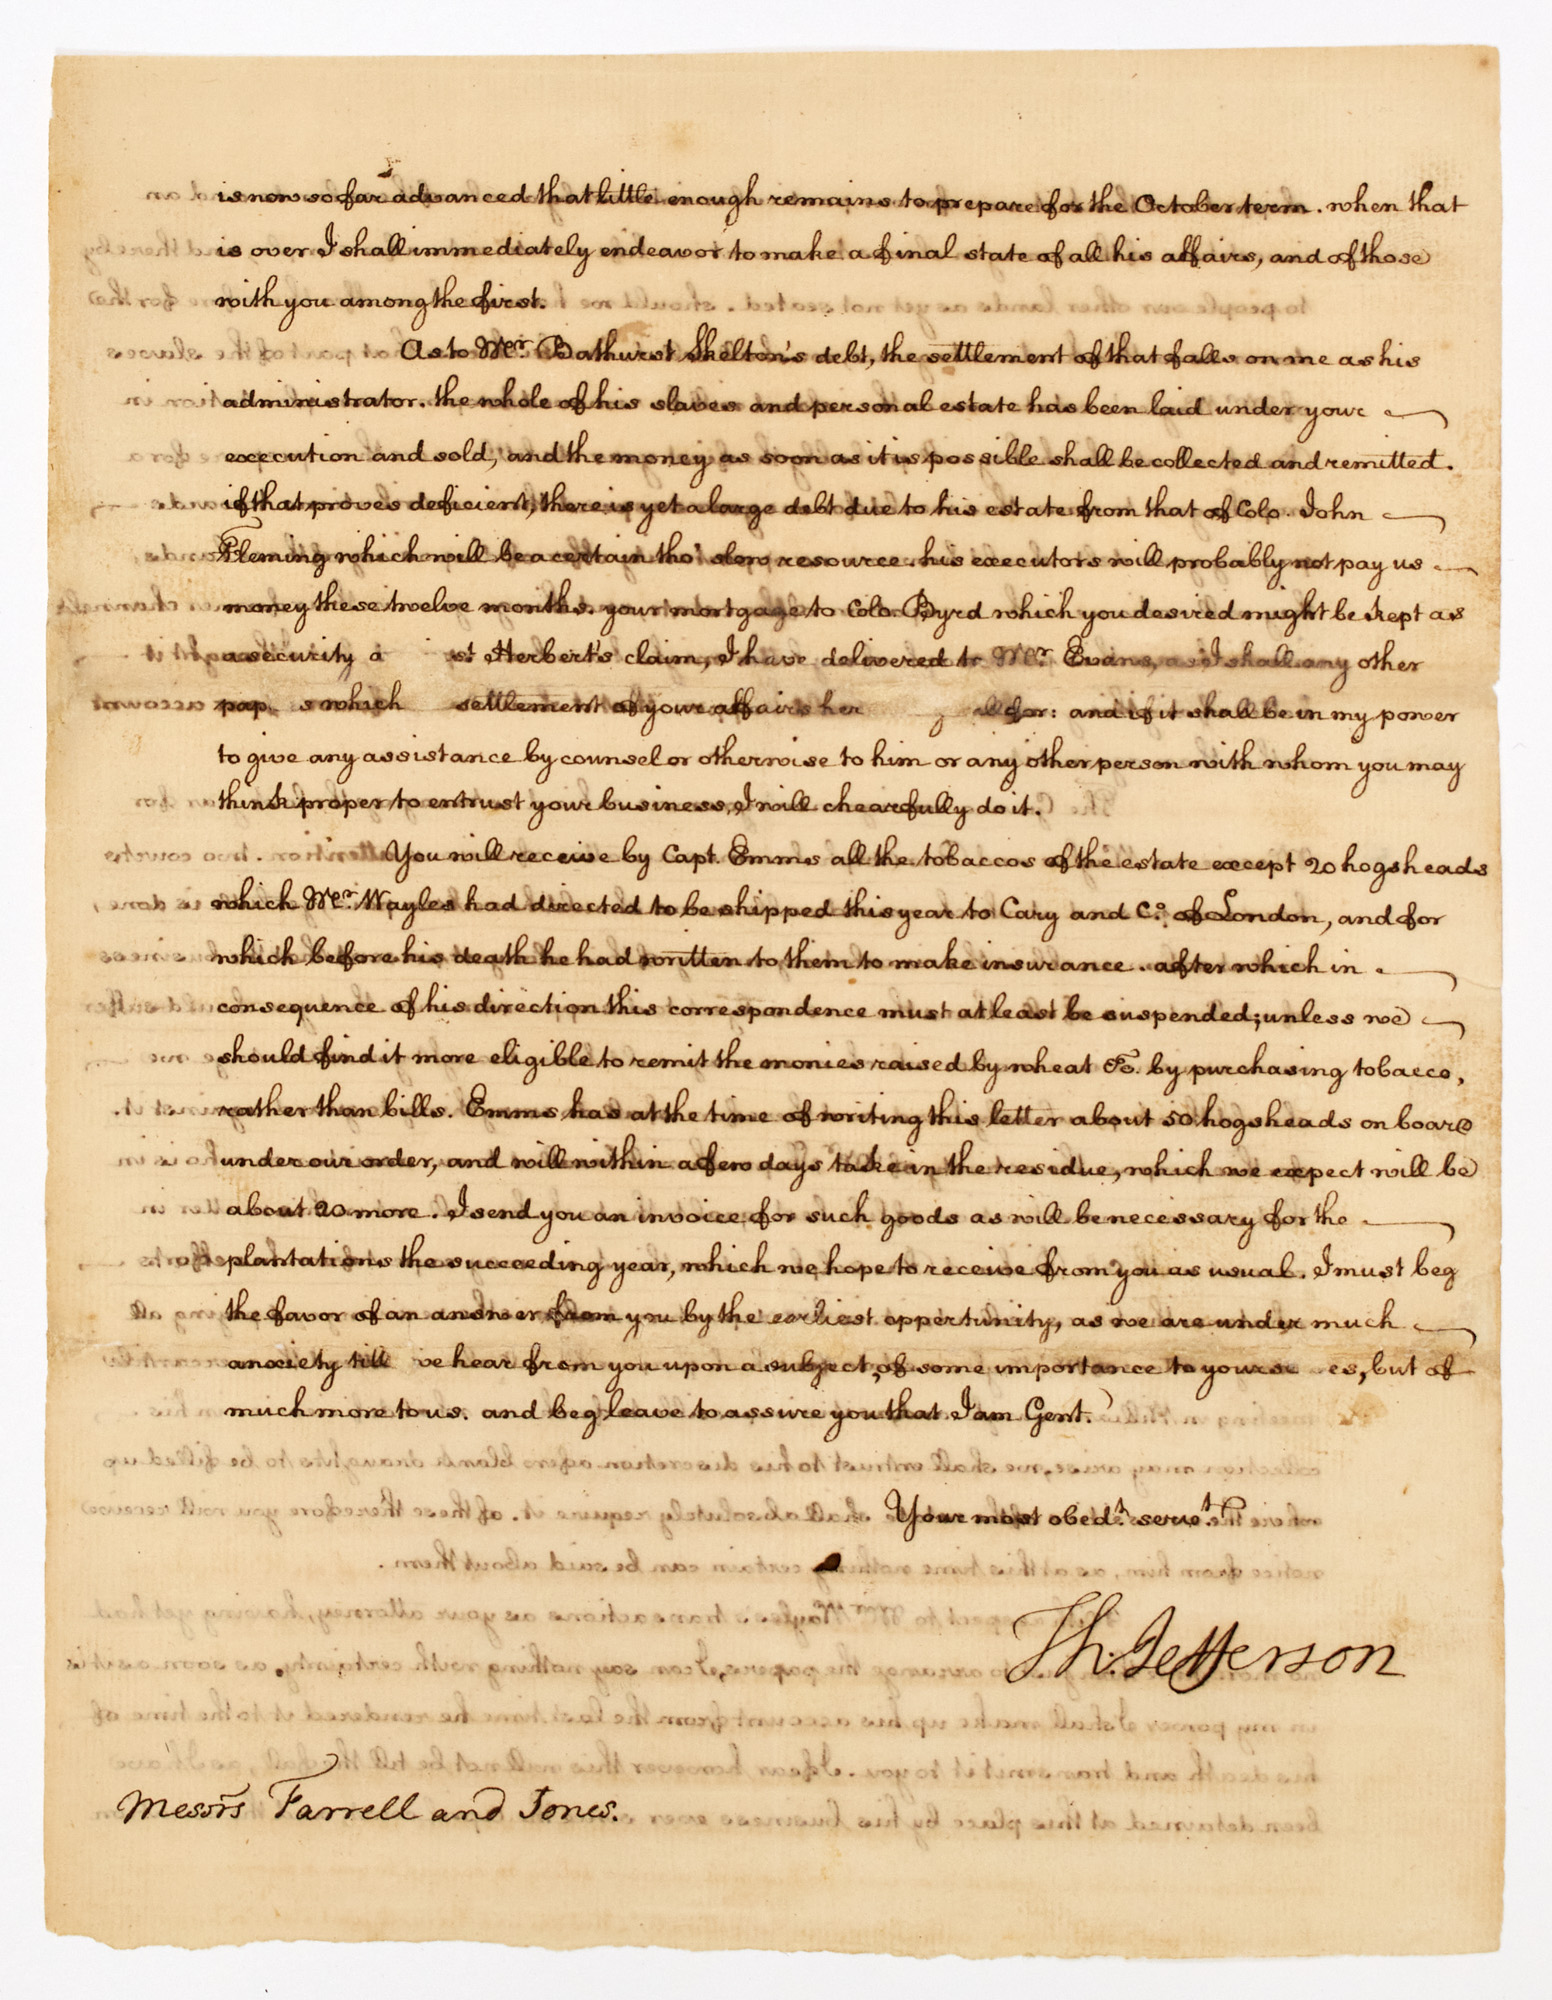 is now so far advanced that little enough remains to prepare for the October term. when that
is over I shall immediately endeavor to make a final state of all his affairs, and of those
with you among the first.
As to Mr. Bathurst Skelton's debt, the settlement of that falls on me as his
administrator. the whole of his slaves and personal estate has been laid under your
execution and sold, and the money as soon as it is possible shall be collected and remitted.
if that proves deficient, there is yet a large debt due to his estate from that of Colo. John
Fleming which will be a certain tho' slow resource. his executors will probably not pay us
money these twelve months. your mortgage to Colo. Byrd which you desired might be kept as
a security a st Herbert's claim, I have delivered to Mr. Evans, as I shall any other
pap s which settlement of your affairs her for: and if it shall be in my power
to give any assistance by counsel or otherwise to him or any other person with whom you may
think proper to entrust your business, I will chearfully do it.
You will receive by Capt. Emms all the tobaccos of the estate except 20 hogsheads
which Mr. Wayles had directed to be shipped this year to Cary and Co. of London, and for
which before his death he had written to them to make insurance. after which in
consequence of his direction this correspondence must at least be suspended; unless we
should find it more eligible to remit the monies raised by wheat &c. by purchasing tobacco,
rather than bills. Emms has at the time of writing this letter about 50 hogsheads on board
under our order, and will within a few days take in the residue, which we expect will be
about 20 more. I send you an invoice for such goods as will be necessary for the
plantations the succeeding year, which we hope to receive from you as usual. I must beg
the favor of an answer from you by the earliest oppertunity, as we are under much
anxiety till we hear from you upon a subject, of some importance to yourse es, but of
much more to us. and beg leave to assure you that I am Gent.
Your most obedt. servt.
Th. Jefferson
Messrs Farrell and Jones.